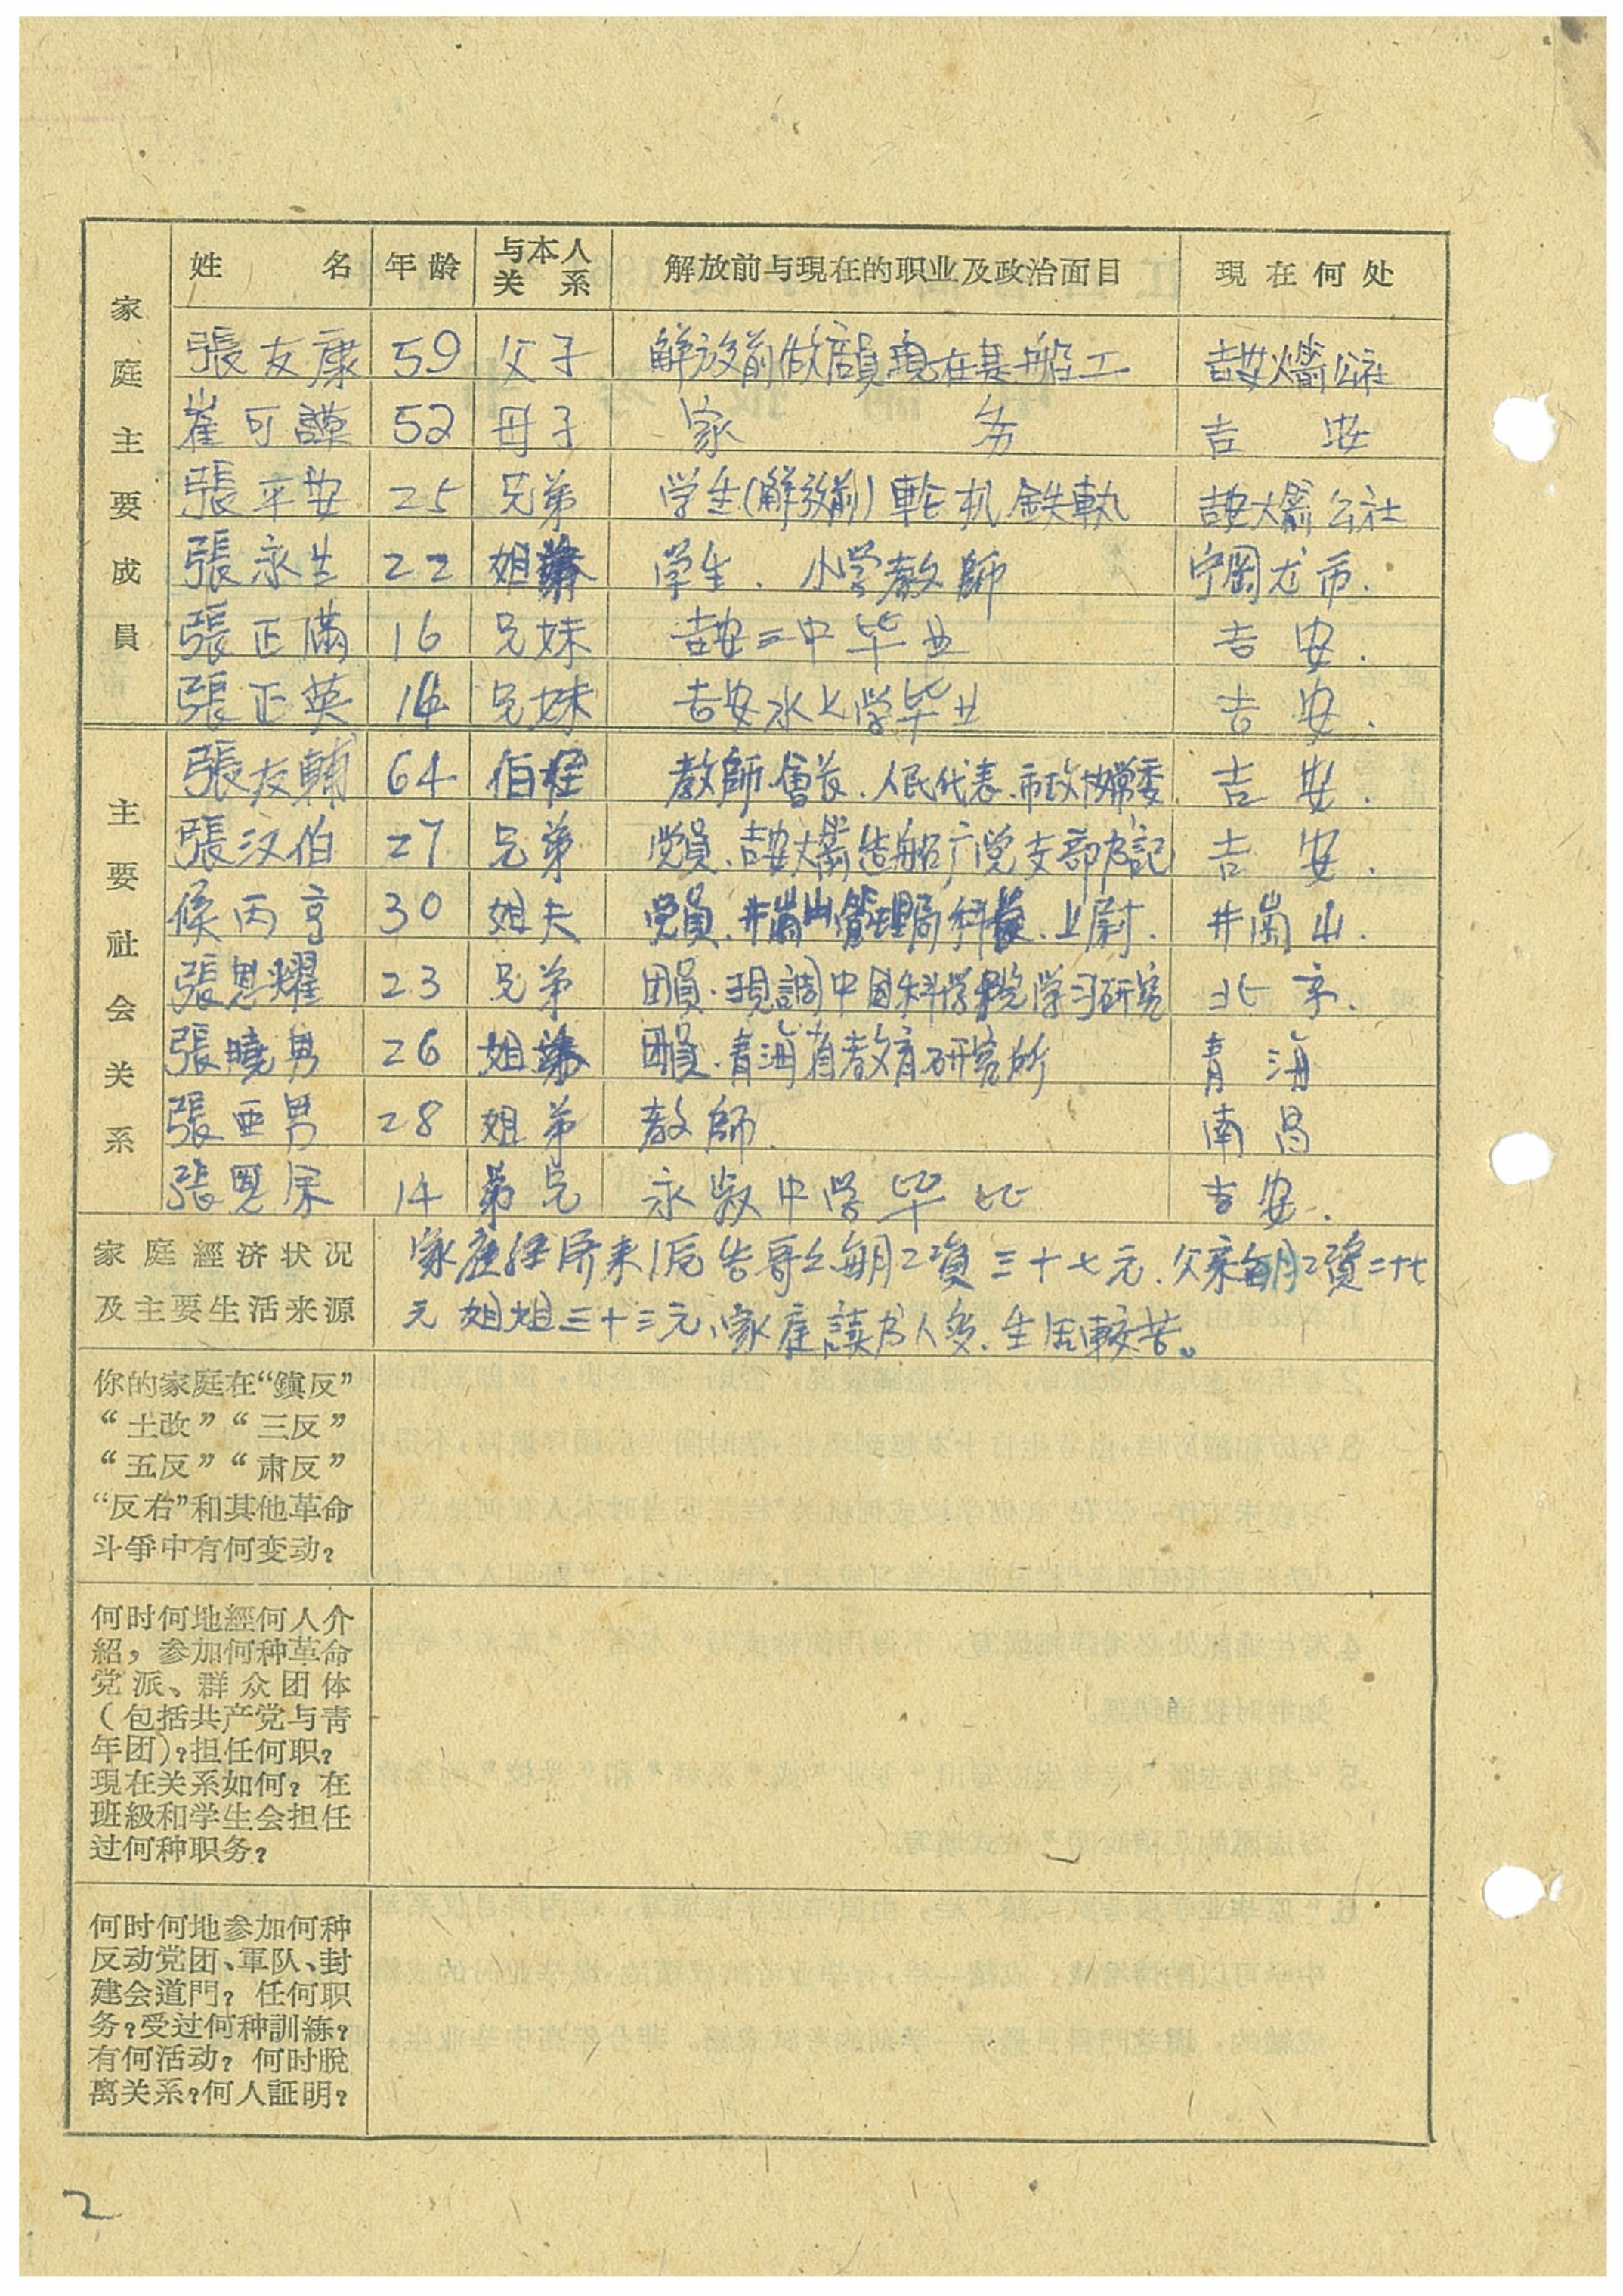 姓 名 年龄 与本人关系 解放前与現在的职业及政治面目 現在何处
家庭主要成員
張友康 59 父子 解放前做店員現在是船工 吉安火箭公社
崔可謹 52 母子 家务 吉安
張平安 25 兄弟 学生(解放前)輪机 吉安火箭公社
張永生 22 姐弟 学生.小学教師 宁岡尤市.
張正滿 16 兄妹 吉安三中毕业 吉安.
張正英 14 兄妹 吉安水上学毕业 吉安.
主要社会关系
張友輔 64 伯侄 教師會長.人民代表.市政协常委 吉安.
張汉伯 27 兄弟 党員、吉安火箭造船厂党支部书記 吉安.
候丙亨 30 姐夫 党員.井崗山管理局科長.上尉. 井崗山.
張思耀 23 兄弟 团員.現調中国科学院学习研究 北京.
張曉男 26 姐弟 团員.青海省教育研究所 青海
張亜男 28 姐弟 教師. 南昌
張 14 弟兄 永 中学毕 吉安.
家庭經济状况
及主要生活来源
家庭经济来源告哥々每月工資三十七元.父亲每月工資二十七
元 姐姐三十三元、家庭讀书人多.生活較苦。
你的家庭在“鎮反”
“土改”“三反”
“五反”“肃反”
“反右”和其他革命
斗爭中有何变动?
何时何地經何人介
紹,参加何种革命
党派、群众团体
(包括共产党与青
年团)?担任何职?
現在关系如何?在
班級和学生会担任
过何种职务?
何时何地参加何种
反动党团、軍队、封
建会道門?任何职
务?受过何种訓練?
有何活动?何时脫
离关系?何人証明?
2